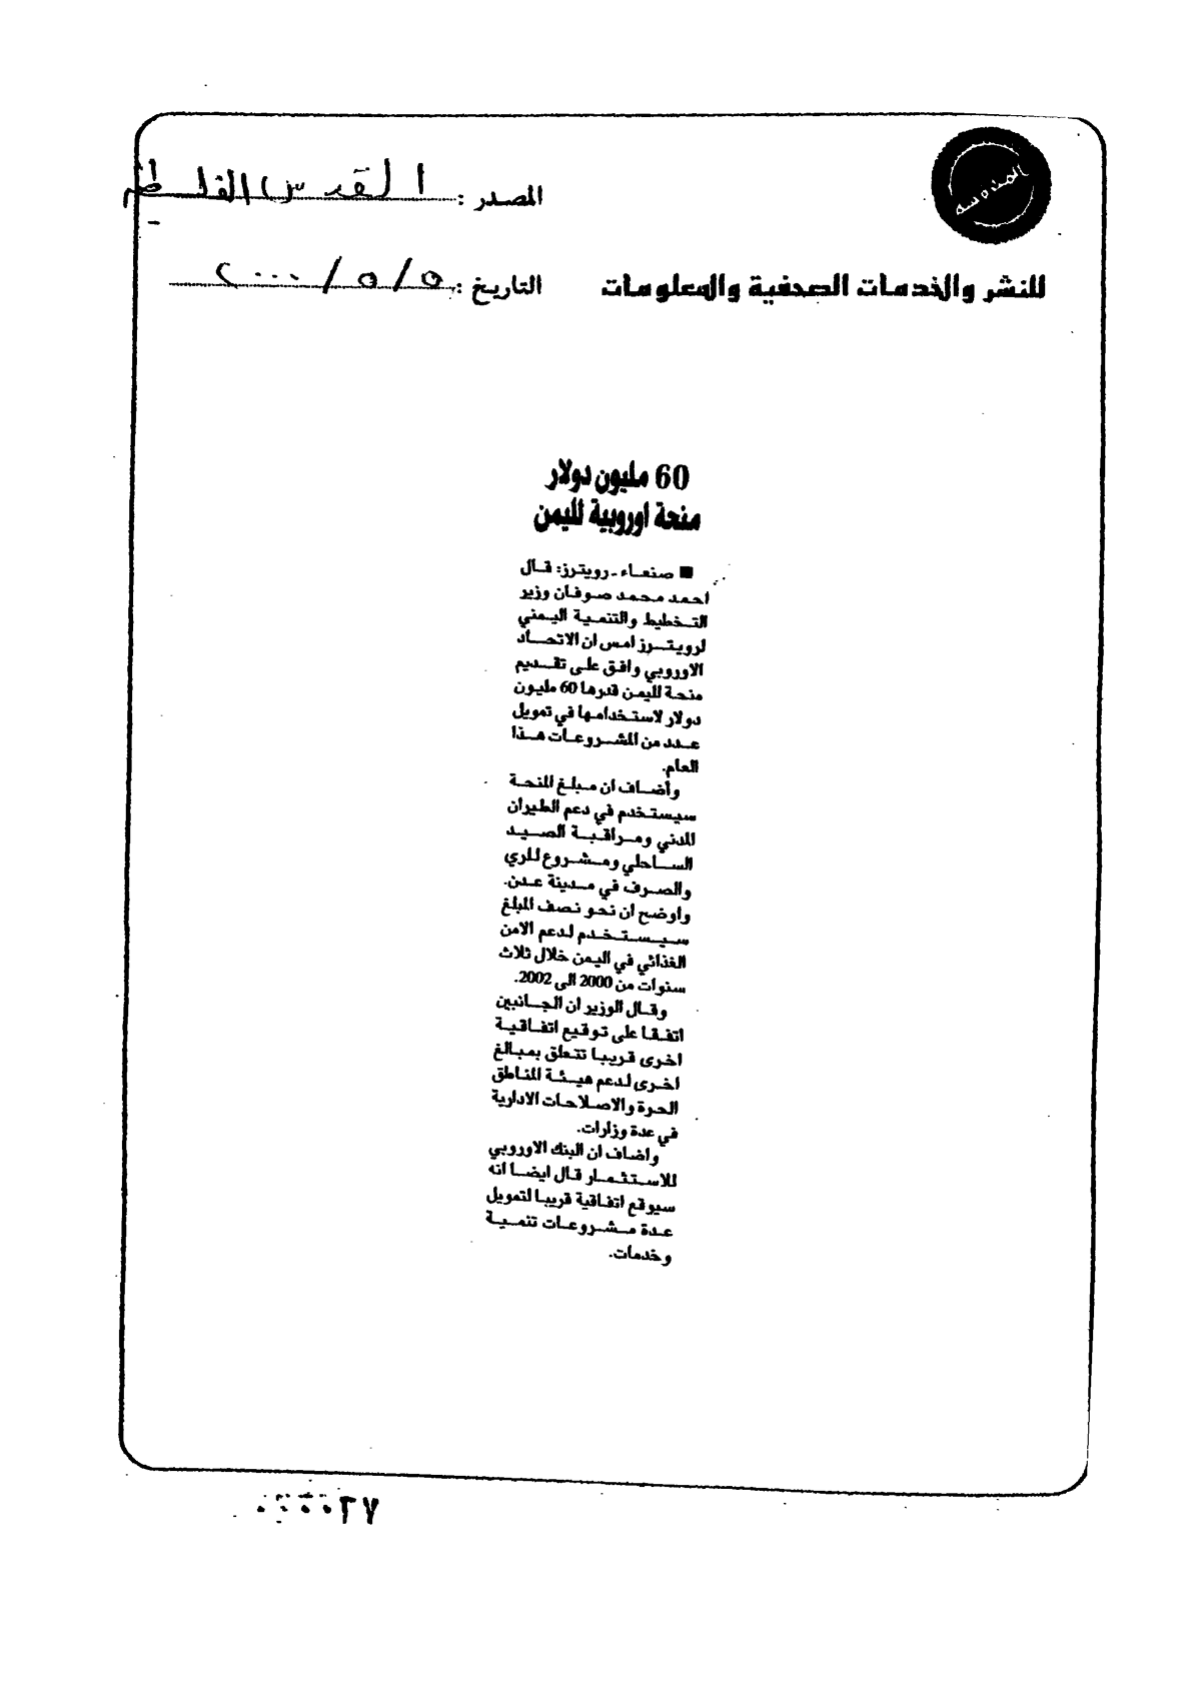 المصدر : القدس الفلسطي
للنشر والخدمات الصحفية والمعلومات
التاريخ : ٥ / ٥ / ٢٠٠٠
60 مليون دولار
منحة اوروبية لليمن
■ صنعاء - رويترز: قال
احمد محمد صوفان وزير
التخطيط والتنمية اليمني
لرويترز امس ان الاتحاد
الاوروبي وافق على تقديم
منحة لليمن قدرها 60 مليون
دولار لاستخدامها في تمويل
عدد من المشروعات هذا
العام.
وأضاف ان مبلغ المنحة
سيستخدم في دعم الطيران
المدني ومراقبة الصيد
الساحلي ومشروع للري
والصرف في مدينة عدن.
واوضح ان نحو نصف المبلغ
سيستخدم لدعم الامن
الغذائي في اليمن خلال ثلاث
سنوات من 2000 الى 2002.
وقال الوزير ان الجانبين
اتفقا على توقيع اتفاقية
اخرى قريبا تتعلق بمبالغ
اخرى لدعم هيئة المناطق
الحرة والاصلاحات الادارية
في عدة وزارات.
واضاف ان البنك الاوروبي
للاستثمار قال ايضا انه
سيوقع اتفاقية قريبا لتمويل
عدة مشروعات تنمية
وخدمات.